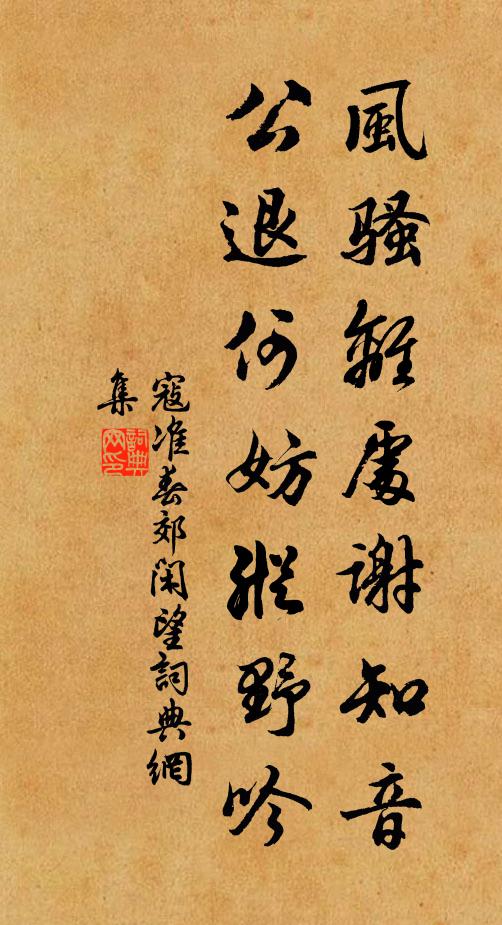 風騷難處謝知音
公退何妨縱野吟
寇准春郊閑望詞典網
集
詞典網印